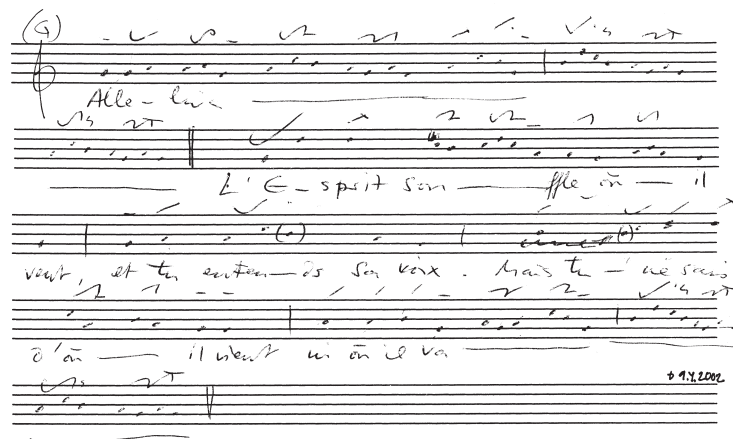 (G)
Alle-luia
L'E-sprit souffle où il
veut, et tu entends sa voix. Mais tu ne sais
d'où il vient ni où il va
9.X.2002